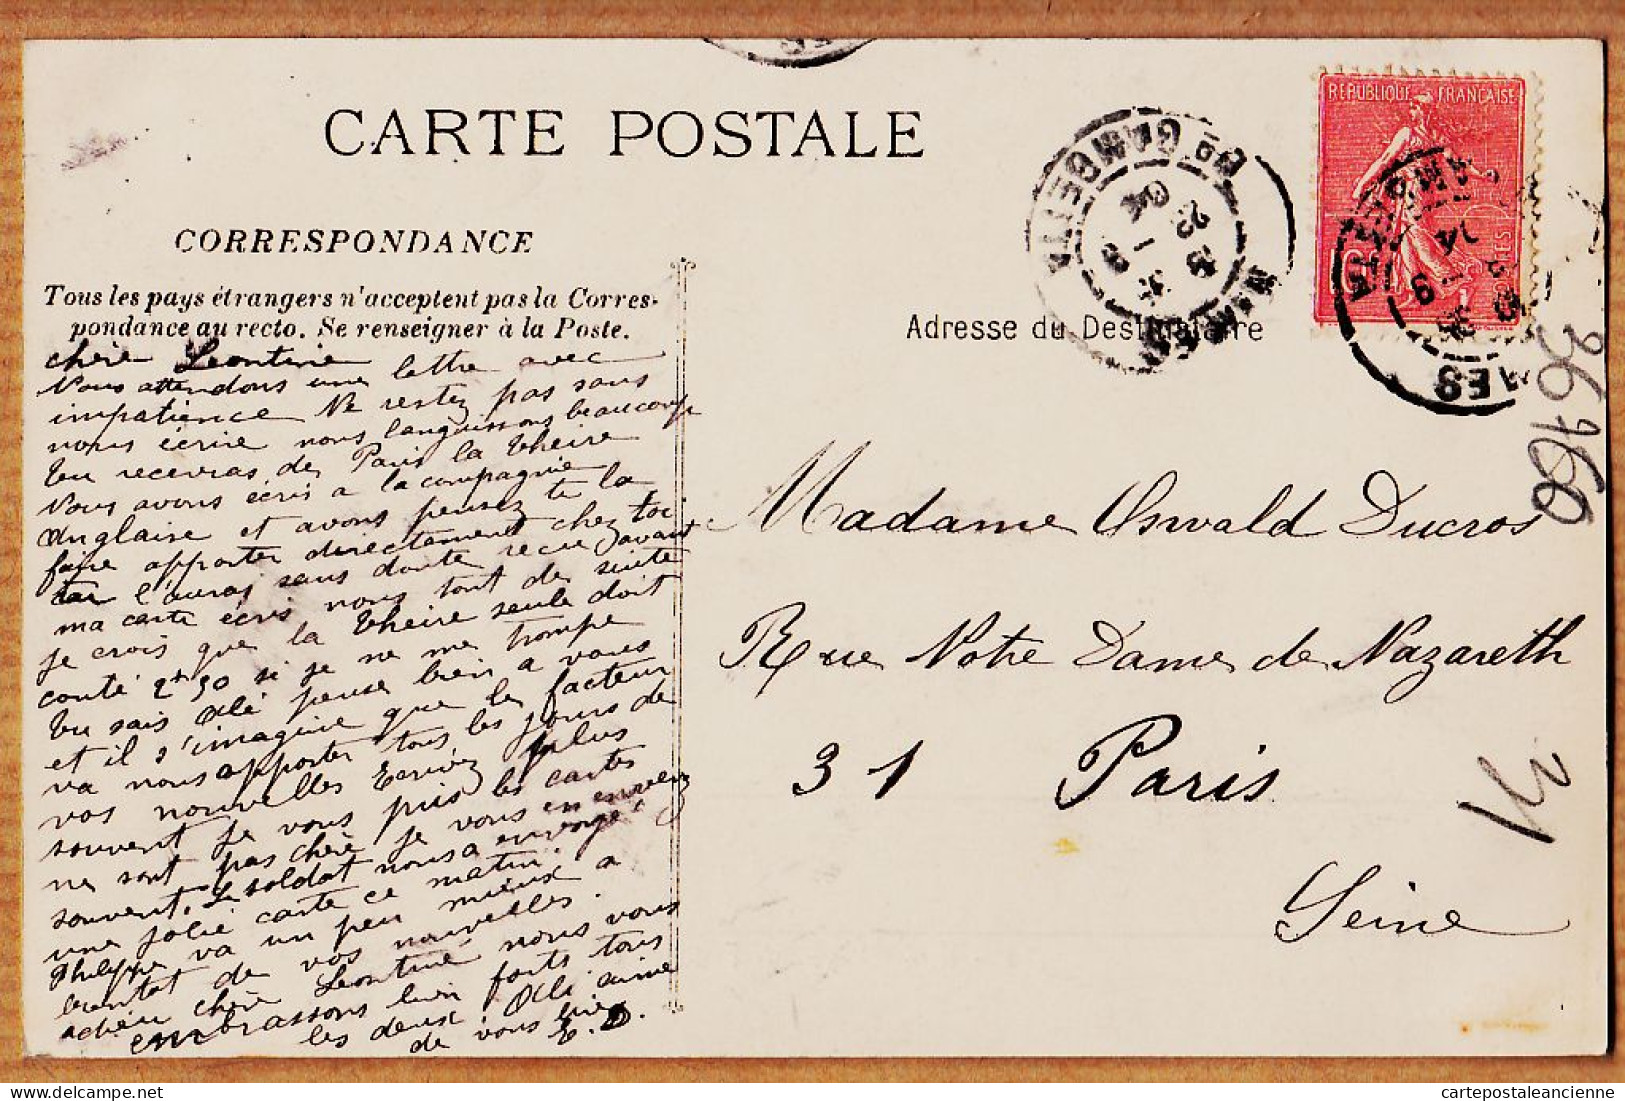 CARTE POSTALE
CORRESPONDANCE
Tous les pays étrangers n'acceptent pas la Corres-
pondance au recto. Se renseigner à la Poste.
Adresse du Destinataire
REPUBLIQUE FRANÇAISE
chère Leontine
Nous attendons une lettre avec
impatience Ne restez pas sans
nous écrire nous languissons beaucoup
tu recevras de Paris la theire
Nous avons écris a la compagnie
Anglaise et avons pensez te la
faire apporter directement chez toi
tu l'auras sans doute recue avant
ma carte écris nous tout de suite
je crois que la theire seule doit
couté 2f 50 si je ne me trompe
tu sais Olé pense bien a vous
et il s'imagine que le facteur
va nous apporter tous les jours de
vos nouvelles Ecrivez plus
souvent je vous puis les cartes
ne sont pas chère je vous en enverz
souvent. Le soldat nous a envoyé
une jolie carte ce matin.
Philippe va un peu mieux a
bientot de vos nouvelles.
adieu chère Leontine nous vous
embrassons bien forts tous
les deux. Olé
de vous lire
E. D.
Madame Oswald Ducros
Rue Notre Dame de Nazareth
31 Paris
Seine
36160
31
NIMES
GAMBETTA
cartepostaleancienne